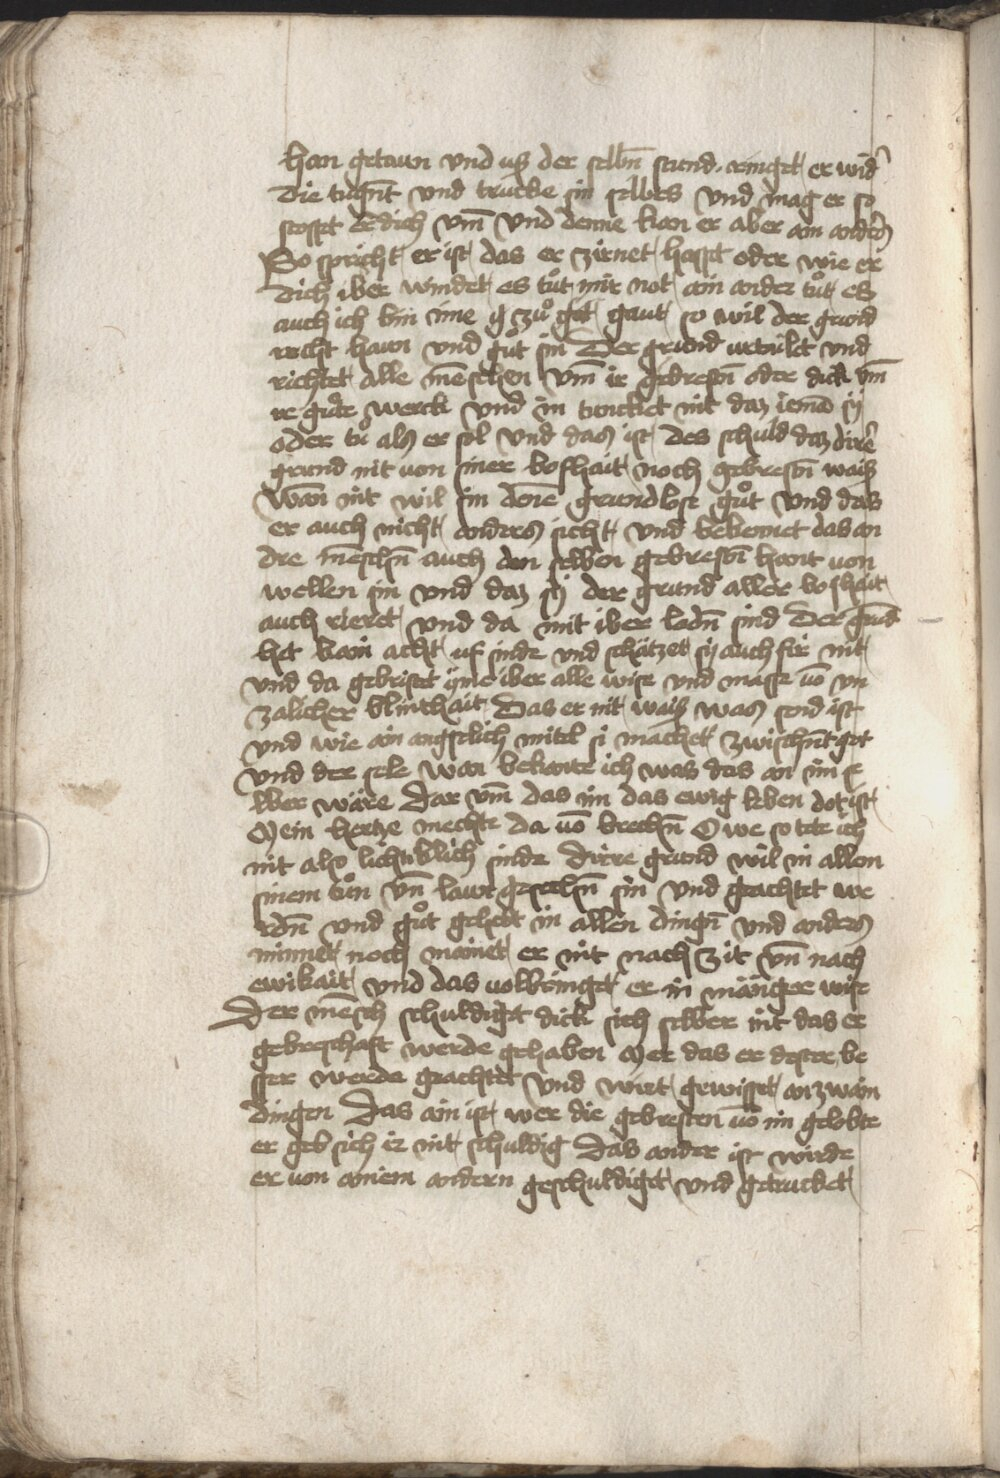 han getaun vnd uß der selbn̄ stund. ringet er wid᷑
die tugn̄t vnd trucke sin selbes vnd mag er so
stosset er dich vm̄ vnd denne kan er aber ain andrn̄
So spricht er ist das er zirnet hasset oder wie er
dich iber windet es tůt mir not ain ander tůt es
auch ich bin ime g zů gůt gaut so wil der grund
recht haun vnd gůt sin Der grund urtailet vnd
richtet alle mēschen vm̄ ir gebresn̄ oder dick vm̄
ir gůte werck vnd in duncket nit daz iemā sy
oder tů als er sol vnd das ist des schuld daz dirē
grund nit von siner boshait noch gebresn̄ waiß
wan nit wil sin denē grundlose gůt vnd das
er auch nicht anders sicht vnd bekennet das an
dre mēschn̄ auch den selben gebresn̄ hant von
wellen sin vnd daz sy der grund aller boshait
auch rieret vnd da mit iber ladn̄ sind Der grūd
het kain acht uf sinde vnd schätzet sy auch fir nit
vnd da gebristet yme iber alle wise vnd masse vō vn
zalicher blinthait Das er nit waiß was sond ist
vnd wie ain angstlich mitel si machet zwischn̄t got
vnd der sele wan bekante ich was das an im s
lber wäre Dar vm̄ das im das ewig leben dot ist
Mein hertze mechte da vō brechn̄ Owe so tete ich
nit also lichtiklich sinde Dirre grund wil in allem
sinem tůn vn̄ lawt gesechn̄ sin vnd geachtet we
rdn̄ vnd gůt gehebt in allen dingn̄ vnd anders
minnet noch mainet er nit nach zit vn̄ nach
ewikait vnd das volbringet er in mänger wise
Der mēsch schuldiget dick sich selber nit das er
gebreschaft werde gehaben Mer das er dester be
sser werde geachtet vnd wirt gewisset an zwain
dingen Das ain ist wer die gebresten vō im gelobte
er geb sich ir nit schuldig Das ander ist wirde
er von ainem andern geschuldiget vnd getrucket